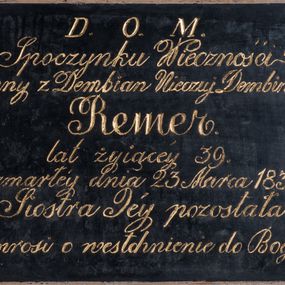 D. O. M.
Spoczynku Wieczności
z Dembian Nieczuj Dembin
Remer.
lat żyiącéy 39.
zmarłéy dnia 23 Marca 183
Siostra Jéy pozostała
prosi o westchnienie do Bog